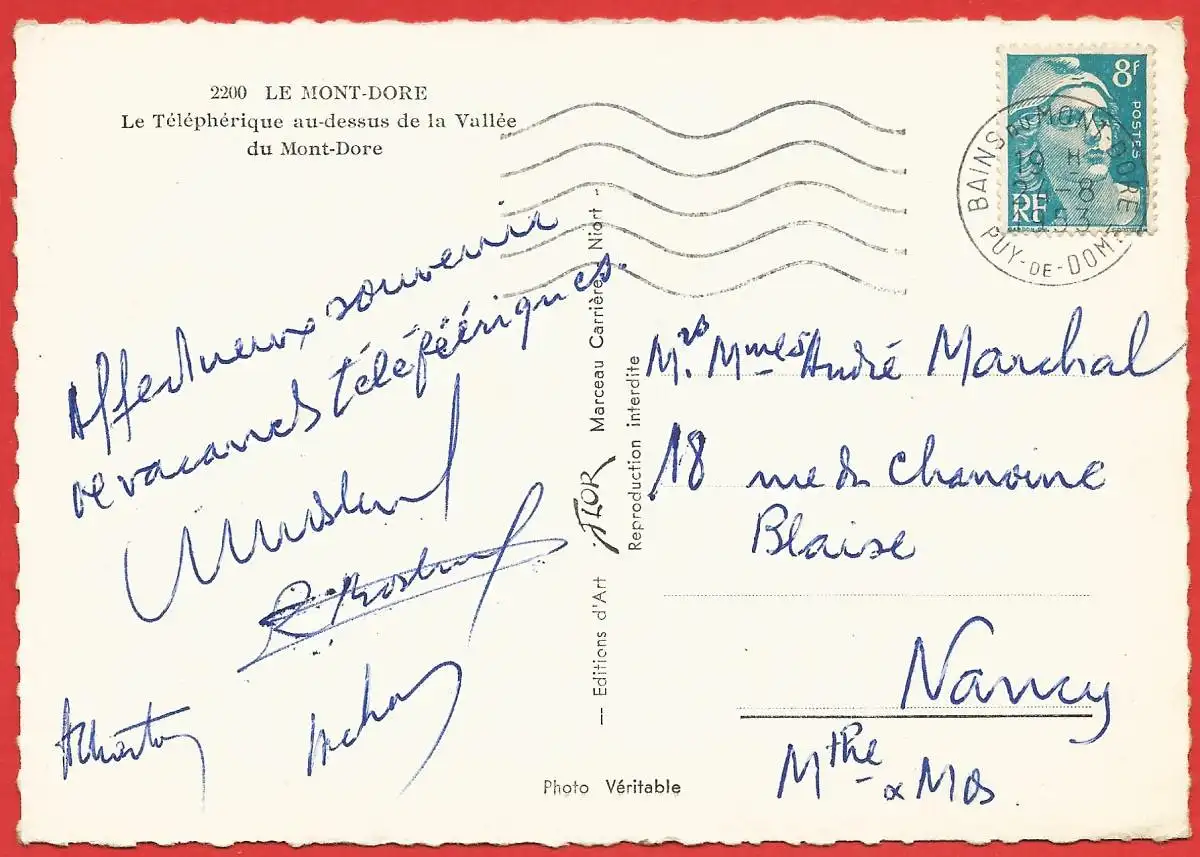 2200 LE MONT-DORE
Le Téléphérique au-dessus de la Vallée
du Mont-Dore
8F
POSTES
RF
BAINS DU MONT-DORE
19 H
-8
1953
PUY-DE-DOME
Affectueux souvenir
de vacances téléféériques.
— Editions d'Art JLOR Marceau Carrière, Niort -
Reproduction interdite
Mr. Mmes André Marchal
18 rue du Chanoine
Blaise
Nancy
Mthe & Mos
Photo Véritable